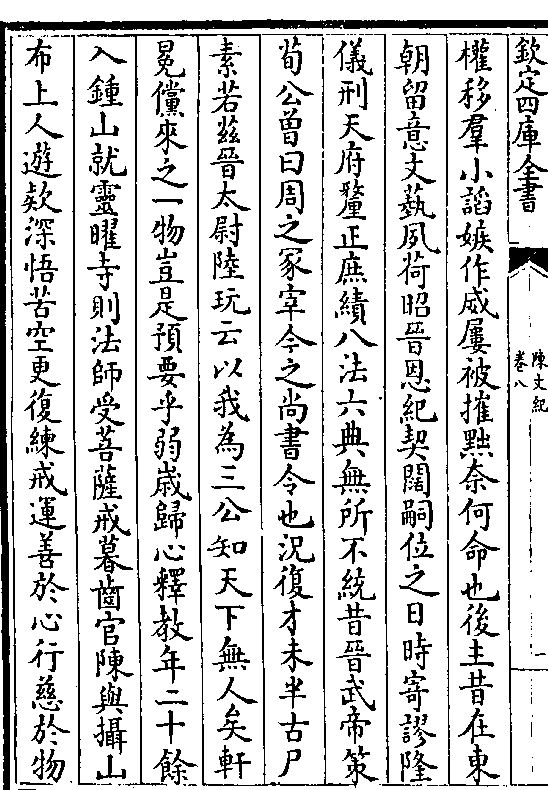 欽定四庫全書
陳文紀
卷八
權移羣小謟嫉作威屢被摧黜奈何命也後主昔在東
朝留意文藝夙荷昭晉恩紀契闊嗣位之日時寄謬隆
儀刑天府釐正庶績八法六典無所不統昔晉武帝策
荀公曾曰周之冢宰今之尚書令也況復才未半古尸
素若兹晉太尉陸玩云以我為三公知天下無人矣軒
冕儻來之一物豈是預要乎弱歲歸心釋教年二十餘
入鍾山就靈曜寺則法師受菩薩戒暮齒官陳與攝山
布上人遊款深悟苦空更復練戒運善於心行慈於物